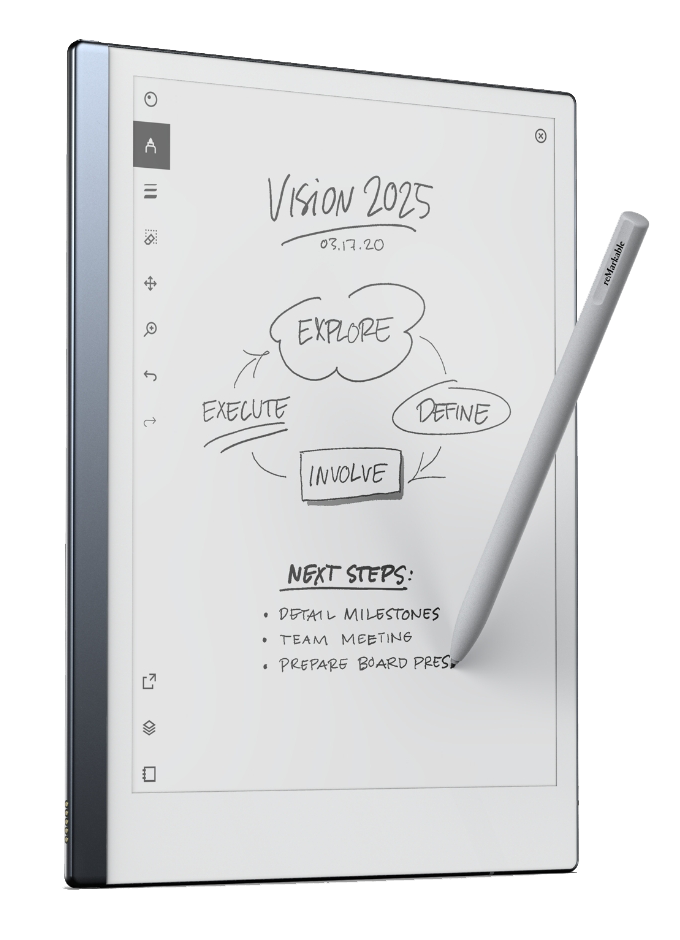 Vision 2025
03.17.20
EXPLORE
EXECUTE
DEFINE
INVOLVE
NEXT STEPS:
• DETAIL MILESTONES
• TEAM MEETING
• PREPARE BOARD PRES
reMarkable